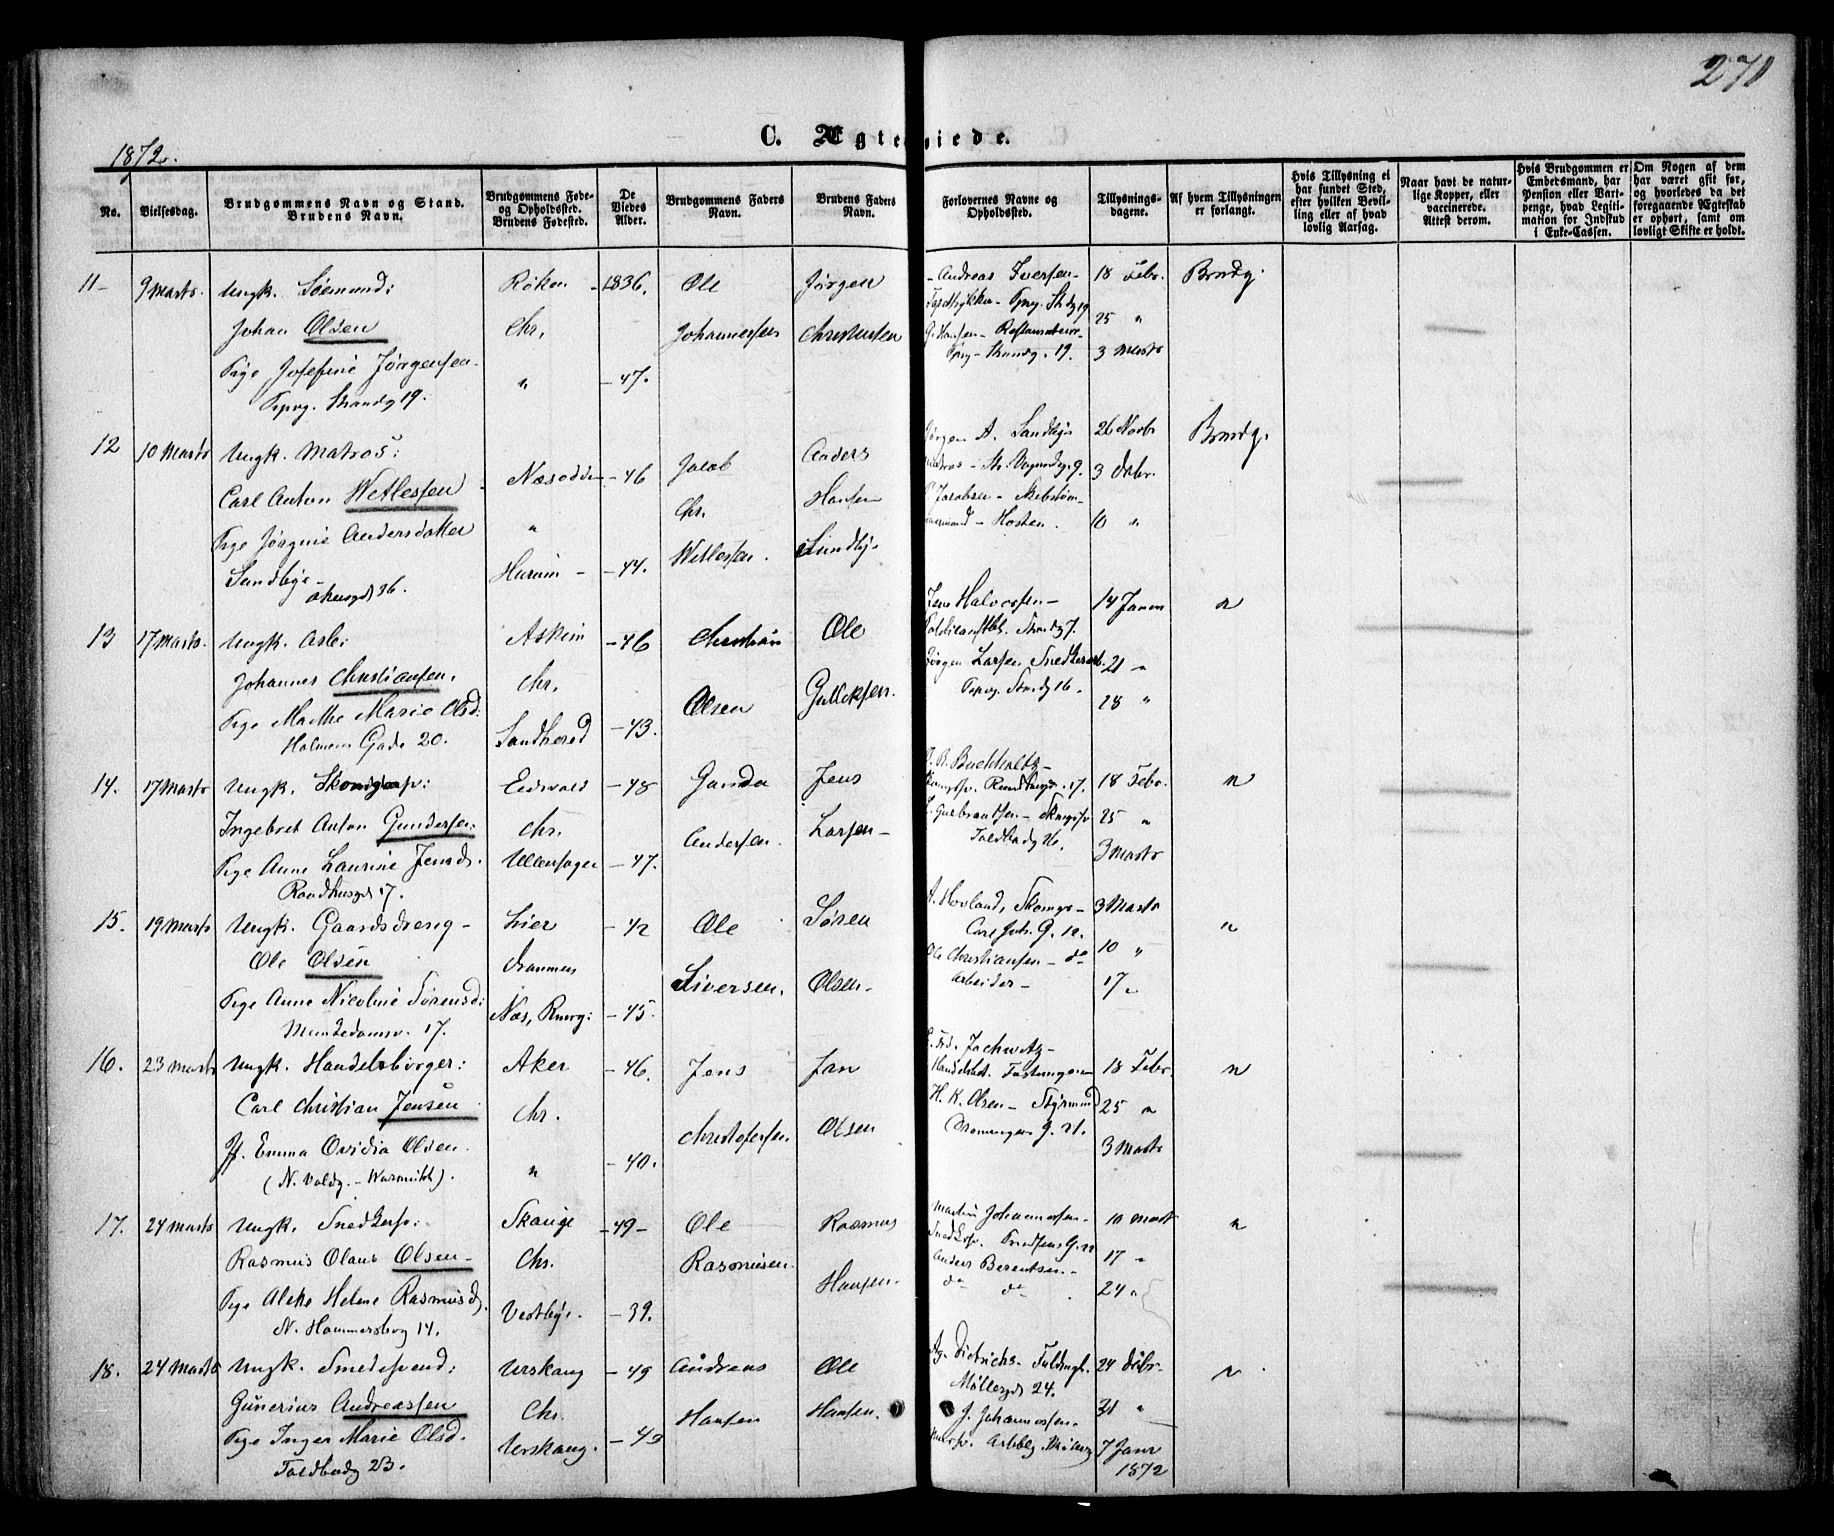 270
C. Ægteviede.
1872.
No.
Vielsesdag.
Brudgommens Navn og Stand.
Brudens Navn.
Brudgommens Føde- og Opholdssted.
Brudens Fødested.
De Viedes Alder.
Brudgommens Faders Navn.
Brudens Faders Navn.
Forlovernes Navne og Opholdssted.
Tillysnings-dagene.
Af hvem Tillysningen er forlangt.
Hvis Tillysning ei har fundet Sted, efter hvilken Bevilling eller af hvad lovlig Aarsag.
Naar havt de naturlige Kopper, eller vaccinerede. Attest derom.
Hvis Brudgommen er Embedsmand, har Pension eller Vartpenge, hvad Legitimation for Indskud i Enke-Cassen.
Om Nogen af dem har været gift før, og hvorledes da det foregaaende Ægteskab er ophørt, samt om lovligt Skifte er holdt.
11 - 9 Marts. Ungk. Sømand: Røken - 1836. Ole Jørgen - Andreas Iversen - 18 Febr. Brudg.
Johan Olsen Chr. Johannessen Christensen 25 "
G. Hansen - 3 Marts
Pige Josefine Jørgensen " - 47.
Pipvg. Strandg 19.
12 10 Marts Ungk. Matros: Næsodden - 46 Jacob Anders Jørgen A. Sandbye 26 Novbr Brudg.
Carl Anton Wetlesen " Chr. Hansen 3 Debr.
Pige Jørgine Andersdatter Hurum - - 44. Wetlesen. Sundby 10 "
Sandbye -
Akersgd 36.
13 17 Marts. Ungk. Arb: Askim - 46 Christian Ole Jens Halvorsen - 14 Januar "
Johannes Christiansen. Chr. Olsen Gulliksen. Jørgen Larsen 21 "
Pige Marthe Marie Olsd: Sandherred - 43. Pipvg. Strandg 16. 28 "
Holmens Gade 20.
14. 17 Marts Ungk. Eidsvold - 48 Gunder Jens 18 Febr. "
Ingebret Anton Gundersen. Chr. Andersen. Larsen - 25 "
Pige Anne Laurine Jensd. Ullensager - 47. 3 Marts
Raadhusgd 17.
15. 19 Marts Ungk. Gaardsdreng - Lier - 42 Ole Søren A. Hovland, 3 Marts "
Ole Olsen Drammen Siversen. Olsen. Carl Joh. G. 12. 10 "
Pige Anne Nicoline Sørensd: Næs, Rmrg: - 45. Ole Christiansen - do 17 "
Munkedamsv. 17. Arbeider -
16. 23 Marts Ungk. Handelsborger: Aker - 46. Jens Jan 18 Febr. "
Carl Christian Jensen Chr. Christofersen Olsen H. K. Olsen - Styrmand 25 "
Jf. Emma Ovidia Olsen. " - 40. 3 Marts
(N. Voldg. - Warmuth).
17. 24 Marts Ungk. Snedkersv: - 49 - Ole Rasmus Martin Johannessen. 10 Marts "
Rasmus Olaus Olsen - Chr. Rasmusen. Hansen. Snedkersv. 17 "
Pige Aleke Helene Rasmusd. Vestbye. - 39. Anders Berentsen. - 24 "
N. Hammersborg 14. do do
18. 24 Marts Ungk. Smedesvend: Urskoug - 49 Andreas Ole 24 Debr. "
Gunerius Andreassen Chr. Hansen Hansen. Møllergd 24. 31 "
Pige Inger Marie Olsd. Urskoug. - 43 J. Johannessen. 7 Janr
Toldbodg 23. 1872